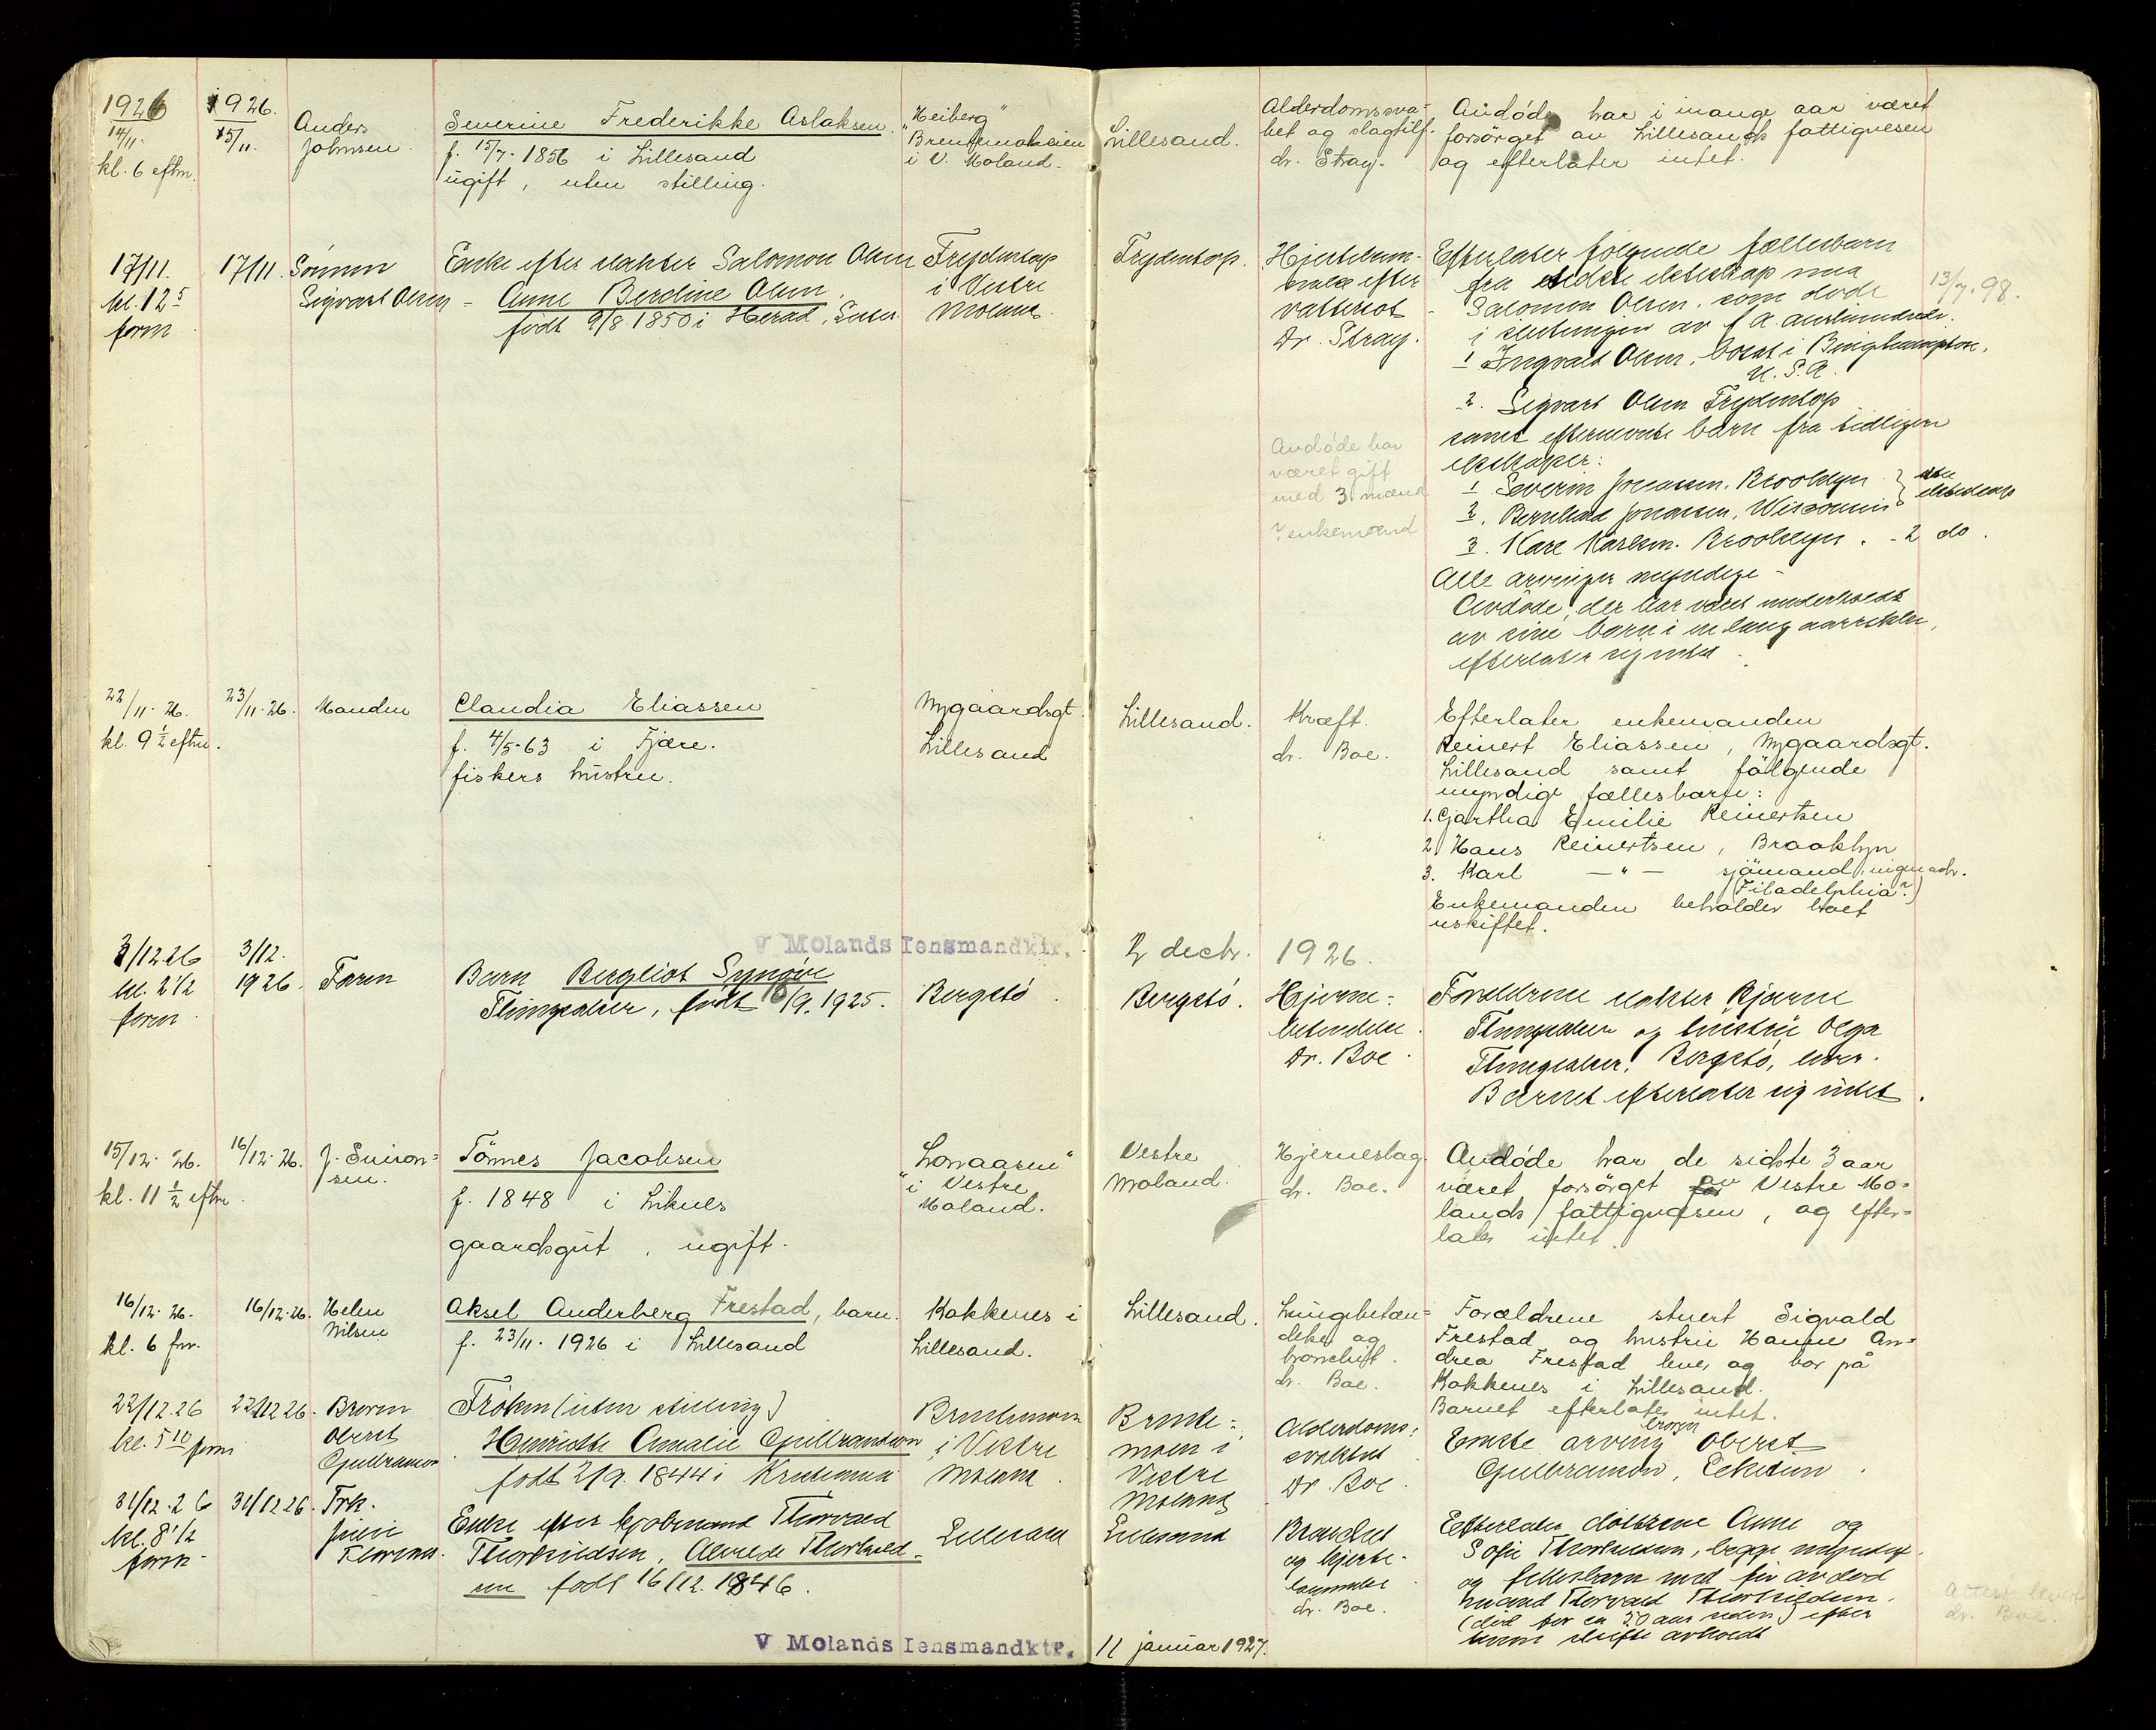 1926
14/11.
kl. 6 eftm.
1926.
15/11.
Anders
Johnsen.
Severine Frederikke Aslaksen.
f. 15/7. 1856 i Lillesand
ugift, uten stilling.
"Heiberg"
Brentemoheien
i V. Moland.
Lillesand.
Alderdomssva-
het og slagtilf.
dr. Stray.
Avdøde har i mange aar været
forsørget av Lillesands fattigvesen
og efterlater intet.
17/11.
kl. 12 5
form
17/11.
Sønnen
Sigvart Olsen
Enke efter Salomon Olsen
Anne Berdine Olsen
født 9/8 1850 i Herad, Lister.
Frydentop
i Vestre
Moland.
Frydentop.
Hjertelam-
melse efter
vattersot
Dr. Stray.
Efterlater følgende fællesbarn
fra sidste ekteskap med
Salomon Olsen. som døde
i slutningen av f. a. aarhundrede.
13/7. 98.
1 Ingvald Olsen, bosat i Binghampton,
U. S. A.
2. Sigvart Olsen Frydentop
samt efternevnte barn fra tidligere
ekteskaper:
1 Severin Jonassen. Brooklyn
2. Bernhard Jonassen, Wisconsin
ekteskap
3. Karl Karlsen. Brooklyn. - 2 do.
Avdøde har
været gift
med 3 mænd
? enkemænd
Alle arvinger myndige -
Avdøde, der har været underholdt
av sine barn i en lang aarrekke,
efterlater sig intet.
22/11. 26.
kl. 9 1/2 eftm.
23/11. 26.
Manden
Claudia Eliassen
f. 4/5-63 i Fjære.
fiskers hustru.
Nygaardsgt.
Lillesand
Lillesand.
Kræft.
dr. Boe.
Efterlater enkemanden
Reinert Eliassen, Nygaardsgt.
Lillesand samt følgende
myndige fællesbarn:
1. Gjartha Emilie Reinertsen
2. Hans Reinertsen, Brooklyn
3. Karl — " — sjømand, ingen adr.
(Filadelphia?)
Enkemanden beholder boet
uskiftet.
V Molands lensmandktr. 2 decbr. 1926.
3/12 26
kl. 2 1/2
form
3/12.
1926.
Faren
Barn Bergliot Synøve
født 18/9. 1925.
Bergstø.
Bergstø.
Hjerne-
betendelse.
Dr. Boe.
Foreldrene Bjarne
og hustru Olga
Bergstø, lever.
Barnet efterlater sig intet.
15/12. 26.
kl. 11 1/2 eftm.
16/12. 26.
J. Simon-
sen.
Tønnes Jacobsen
f. 1848 i Liknes
gaardsgut, ugift.
"Lonaasen"
i Vestre
Moland.
Vestre
Moland.
Hjerneslag.
dr. Boe.
Avdøde har de sidste 3 aar
været forsørget av Vestre Mo-
lands fattigvæsen, og efter-
later intet.
16/12. 26.
kl. 6 fm.
16/12. 26.
Helen
Nilsen
Aksel Anderberg Frestad, barn.
f. 23/11. 1926 i Lillesand
Kokkenes i
Lillesand.
Lillesand.
Lungebetæn-
delse og
bronchit.
dr. Boe.
Forældrene stuert Sigvald
Frestad og hustru Hanne An-
drea Frestad lever og bor på
Kokkenes i Lillesand.
Barnet efterlater intet.
22/12. 26
kl. 5 10 form
22/12 26.
Broren
Oberst
Gulbranson.
Frøken (uten stilling)
Henriette Amalie Gulbranson
født 2/9. 1844 i Kristiania
Brentemoen
i Vestre
Moland.
Brente-
moen i
Vestre
Moland
Alderdoms-
svakhet
Dr. Boe
Eneste arving broren Oberst
Gulbranson,
31/12. 26
kl. 8 1/2
form
31/12 26.
Frk.
Enke efter Thorvald
Thorkildsen,
født 16/12. 1846.
Lillesand
Lillesand
Bronchit
og hjerte-
lammelse
dr. Boe.
Efterlater døtrene Anne og
Sofie Thorkildsen, begge myndige
og fellesbarn med før avdød
mand Thorvald Thorkildsen.
(død for ca 20 aar siden) efter
hvem skifte avholdt
dr. Boe.
V Molands lensmandktr. 11 januar 1927.